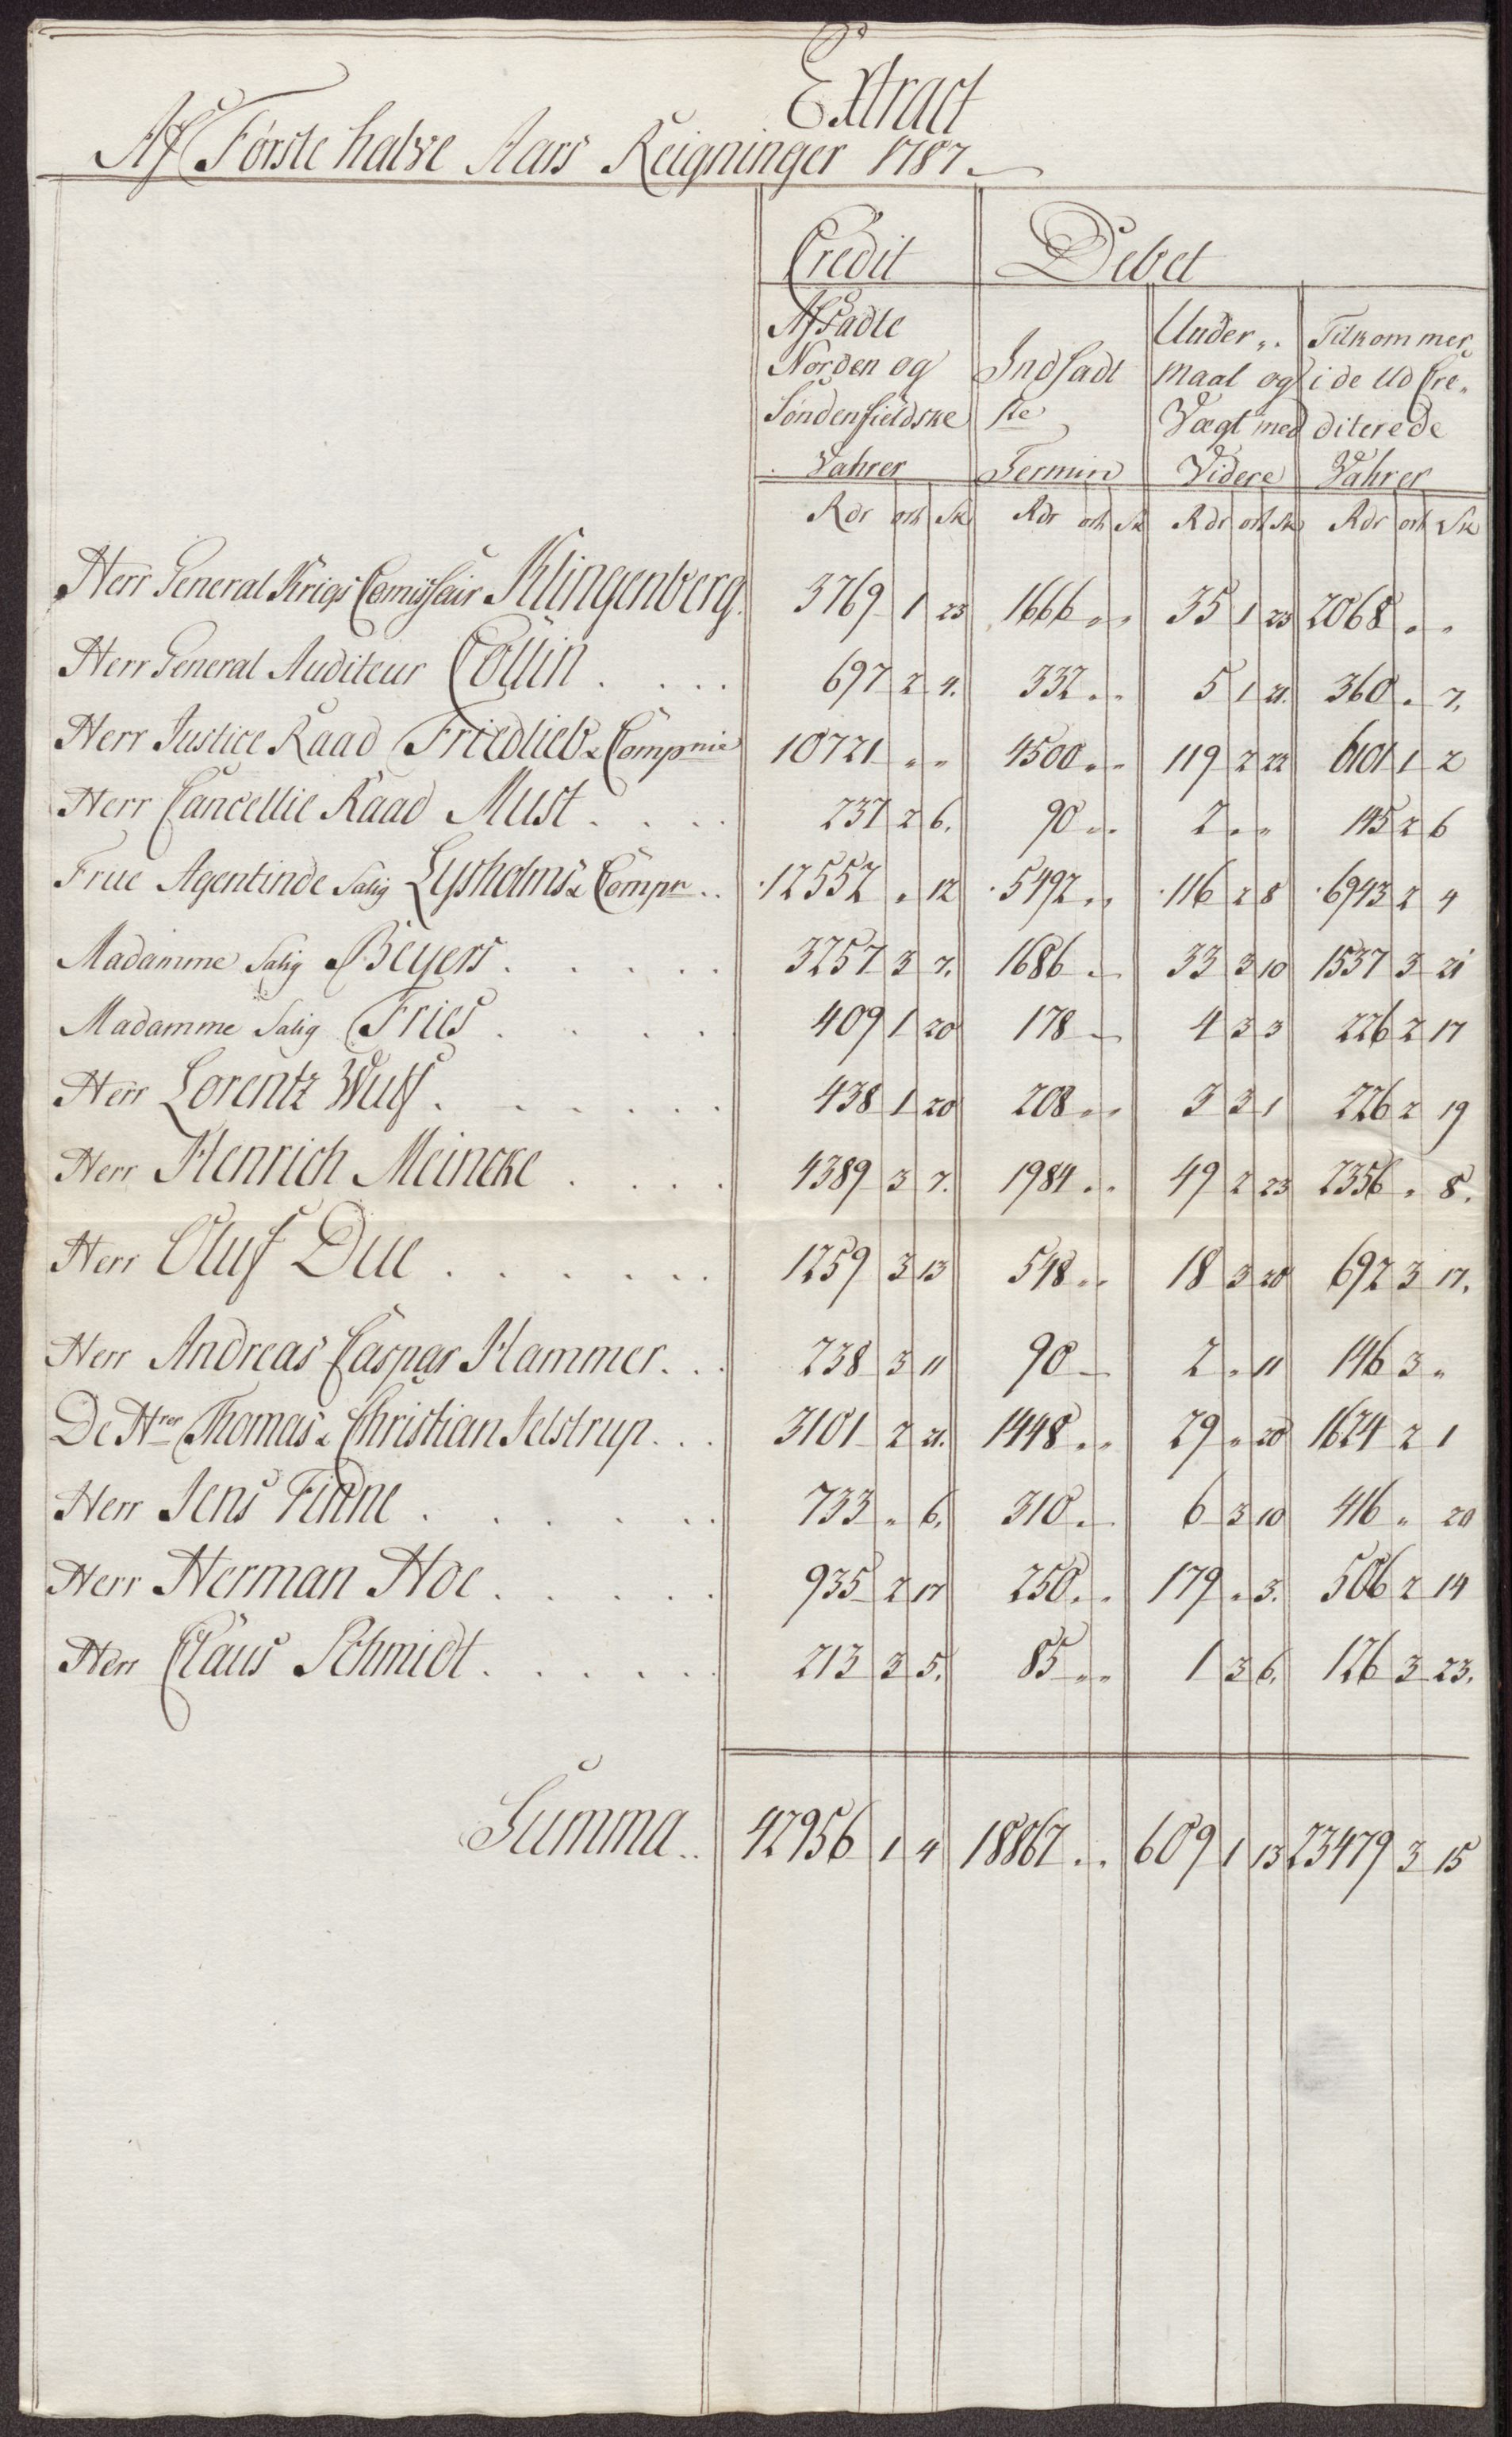 Extract
Af Første halve Aars Reigninger 1787
Credit Debet
Afsadte Under„ Tilkommer
Norden og Indsadt maal og i de Ud Cre„
Søndenfieldske ste Vægt med diterede
Vahrer Termin Videre Vahrer
Rdr ort Sk Rdr ort Sk Rdr ort Sk Rdr ort Sk
Herr General Krigs Comissair Klingenberg. 3769 1 23 1666 „ „ 35 1 23 2068 „ „
Herr General Auditeur Collin . . . . 697 2 4. 332 „ „ 5 1 21. 360 „ 7.
Herr Justice Raad Friedlieb & Compnie 10721 „ „ 4500 „ „ 119 2 22 6101 1 2
Herr Cancellie Raad Must . . . . 237 2 6. 90 „ „ 2 „ „ 145 2 6
Frue Agentinde Salig Lysholms & Compn . . 12552 „ 12 5492 „ „ 116 2 8 6943 2 4
Madamme Salig Beyers . . . . . 3257 3 7. 1686 „ 33 3 10 1537 3 21
Madamme Salig Fries . . . . . 409 1 20 178 „ 4 3 3 226 2 17
Herr Lorentz Wulf . . . . . . 438 1 20 208 „ „ 3 3 1 226 2 19
Herr Henrich Meincke . . . . 4389 3 7. 1984 „ „ 49 2 23 2356 „ 8.
Herr Oluf Due . . . . . . 1259 3 13 548 „ „ 18 3 20 692 3 17.
Herr Andreas Caspar Hammer . . . 238 3 11 90 „ 2 „ 11 146 3 „
De Hrer Thomas & Christian Jelstrup . . . 3101 2 21. 1448 „ „ 29 „ 20 1624 2 1
Herr Jens Finne . . . . . . 733 „ 6. 310 „ 6 3 10 416 „ 20
Herr Herman Hoe . . . . . 935 2 17 250 „ „ 179 „ 3. 506 2 14
Herr Claus Schmidt . . . . . . 213 3 5. 85 „ „ 1 3 6. 126 3 23.
Summa . . 42956 1 4 18867 „ „ 609 1 13 23479 3 15